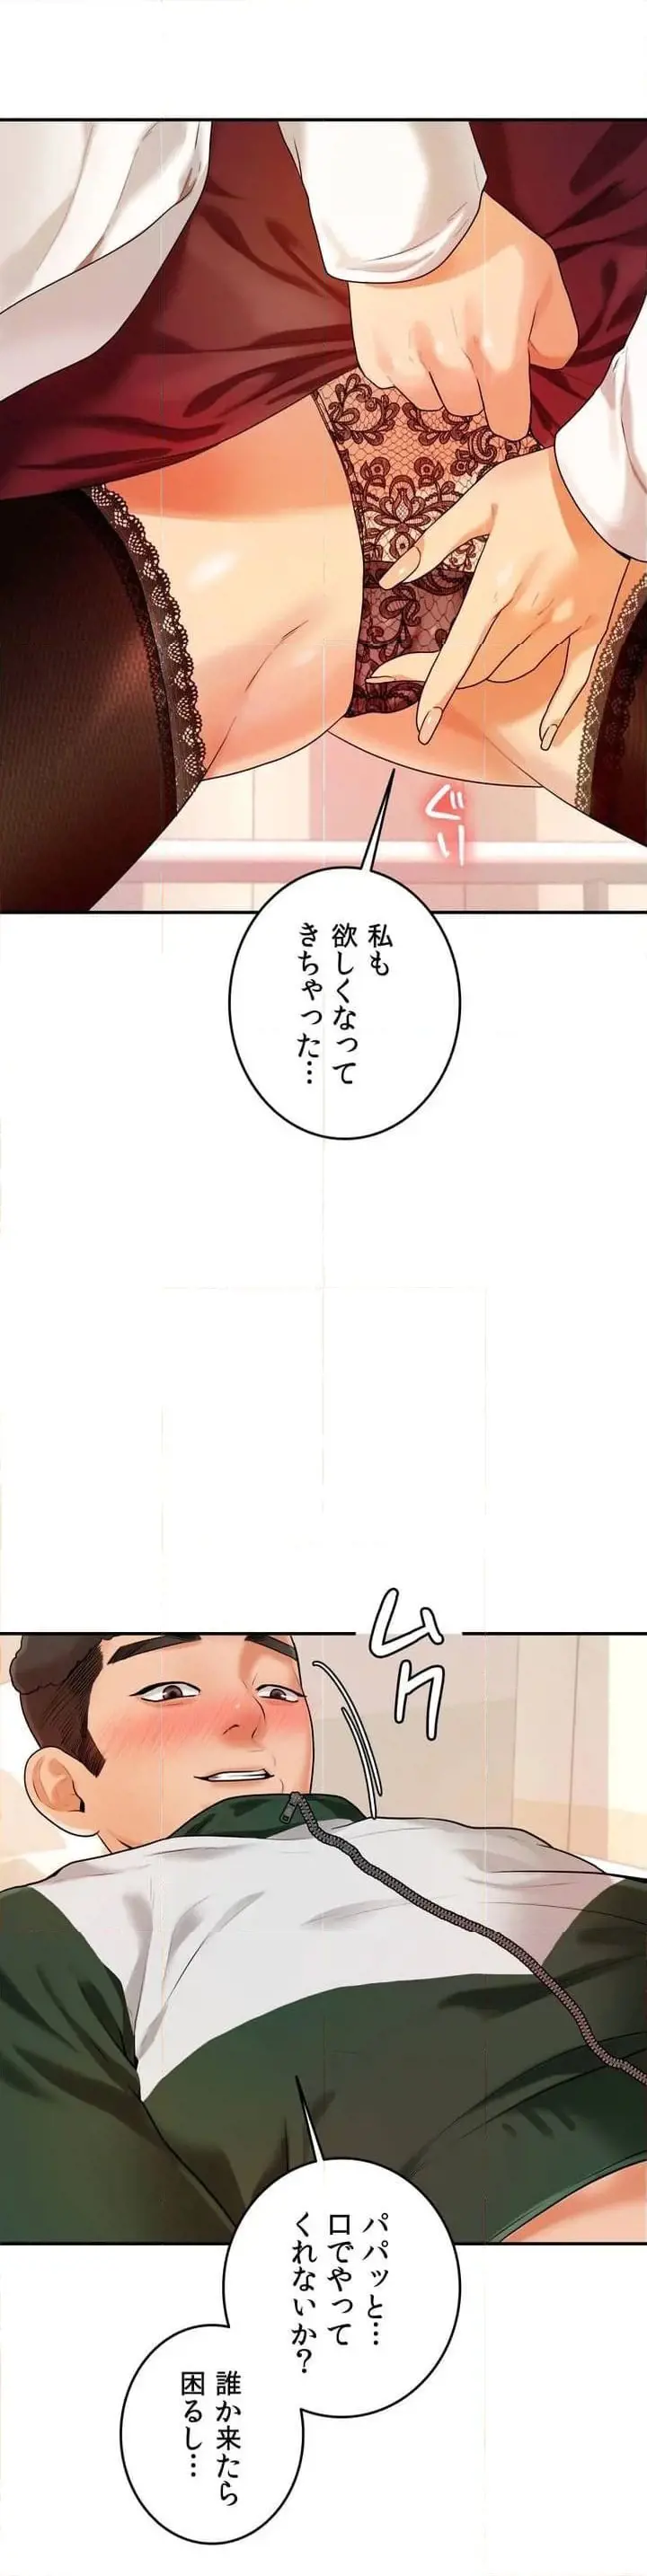 ぐい
私も
欲しくなって
きちゃった…
ムク
パパッと…
口でやって
くれないか？
誰か来たら
困るし…